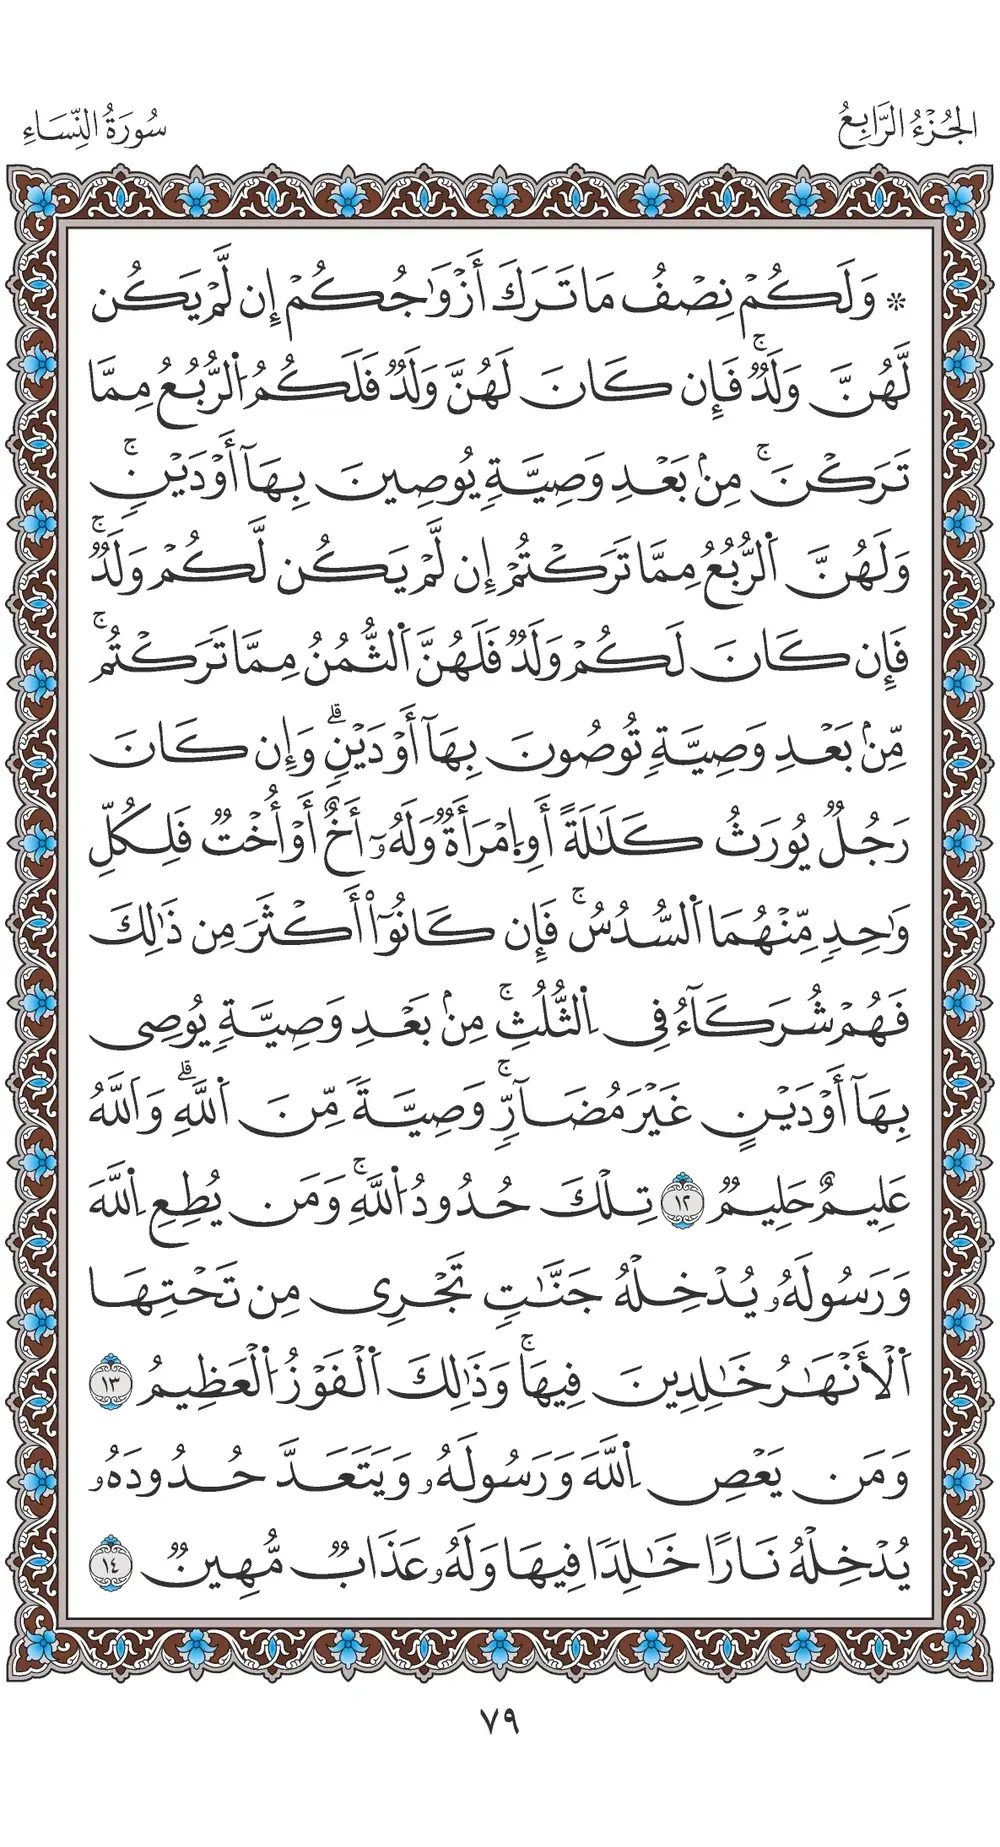 الجُزْءُ الرَّابِعُ
سُورَةُ النِّسَاءِ
۞ وَلَكُمْ نِصْفُ مَا تَرَكَ أَزْوَٰجُكُمْ إِن لَّمْ يَكُن
لَّهُنَّ وَلَدٌ ۚ فَإِن كَانَ لَهُنَّ وَلَدٌ فَلَكُمُ ٱلرُّبُعُ مِمَّا
تَرَكْنَ ۚ مِنۢ بَعْدِ وَصِيَّةٍ يُوصِينَ بِهَآ أَوْ دَيْنٍ ۚ
وَلَهُنَّ ٱلرُّبُعُ مِمَّا تَرَكْتُمْ إِن لَّمْ يَكُن لَّكُمْ وَلَدٌ ۚ
فَإِن كَانَ لَكُمْ وَلَدٌ فَلَهُنَّ ٱلثُّمُنُ مِمَّا تَرَكْتُم ۚ
مِّنۢ بَعْدِ وَصِيَّةٍ تُوصُونَ بِهَآ أَوْ دَيْنٍ ۗ وَإِن كَانَ
رَجُلٌ يُورَثُ كَلَٰلَةً أَوِ ٱمْرَأَةٌ وَلَهُۥٓ أَخٌ أَوْ أُخْتٌ فَلِكُلِّ
وَٰحِدٍ مِّنْهُمَا ٱلسُّدُسُ ۚ فَإِن كَانُوٓا۟ أَكْثَرَ مِن ذَٰلِكَ
فَهُمْ شُرَكَآءُ فِى ٱلثُّلُثِ ۚ مِنۢ بَعْدِ وَصِيَّةٍ يُوصِى
بِهَآ أَوْ دَيْنٍ غَيْرَ مُضَآرٍّ ۚ وَصِيَّةً مِّنَ ٱللَّهِ ۗ وَٱللَّهُ
عَلِيمٌ حَلِيمٌ ١٢ تِلْكَ حُدُودُ ٱللَّهِ ۚ وَمَن يُطِعِ ٱللَّهَ
وَرَسُولَهُۥ يُدْخِلْهُ جَنَّٰتٍ تَجْرِى مِن تَحْتِهَا
ٱلْأَنْهَٰرُ خَٰلِدِينَ فِيهَا ۚ وَذَٰلِكَ ٱلْفَوْزُ ٱلْعَظِيمُ ١٣
وَمَن يَعْصِ ٱللَّهَ وَرَسُولَهُۥ وَيَتَعَدَّ حُدُودَهُۥ
يُدْخِلْهُ نَارًا خَٰلِدًا فِيهَا وَلَهُۥ عَذَابٌ مُّهِينٌ ١٤
٧٩